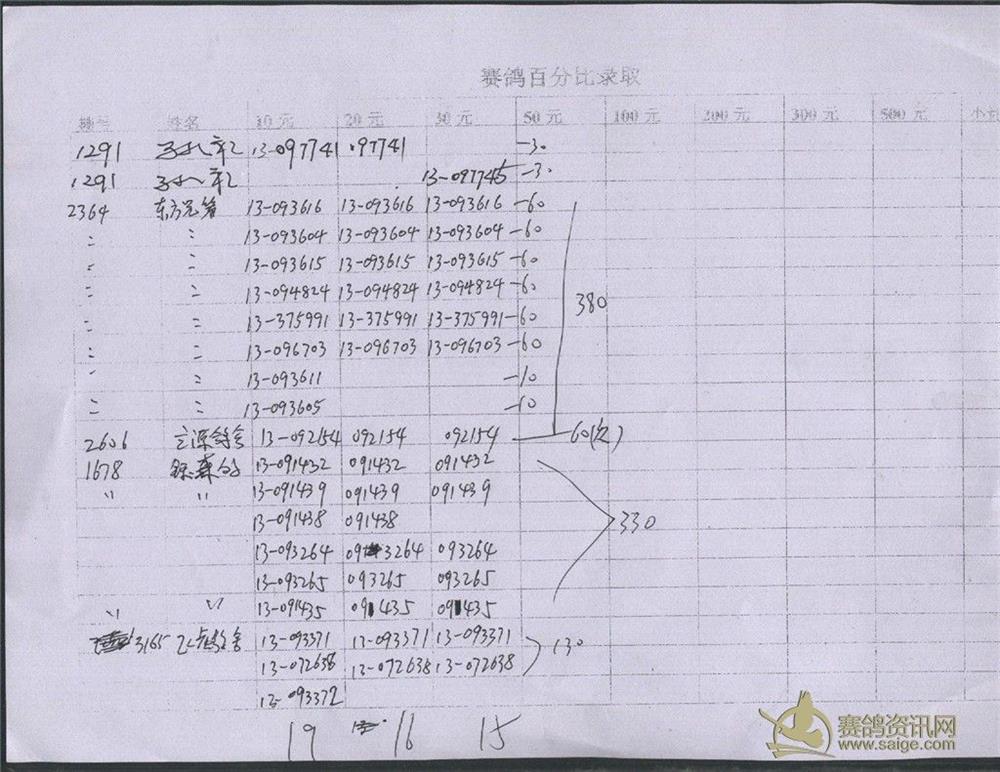 赛鸽百分比录取
棚号 姓名 10元 20元 30元 50元 100元 200元 300元 500元 小计
1291 13-097741 097741 -30
1291 13-097745 -30
2364 东方兄弟 13-093616 13-093616 13-093616 -60
〃 〃 13-093604 13-093604 13-093604 -60
〃 〃 13-093615 13-093615 13-093615 -60
〃 〃 13-094824 13-094824 13-094824 -60
380
〃 〃 13-375991 13-375991 13-375991 -60
〃 〃 13-096703 13-096703 13-096703 -60
〃 〃 13-093611 -10
〃 〃 13-093605 -10
2606 13-092154 092154 092154 60
1678 13-091432 091432 091432
〃 〃 13-091439 091439 091439
13-091438 091438 330
13-093264 093264 093264
13-093265 093265 093265
〃 〃 13-091435 091435 091435
3165 13-093371 13-093371 13-093371 130
13-072638 13-072638 13-072638
13-093372
19 16 15
赛鸽资讯网
www.saige.com